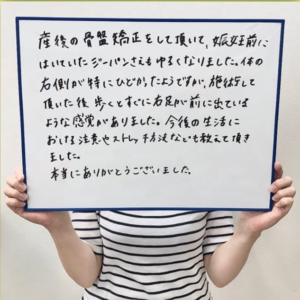 産後の骨盤矯正をして頂いて、妊娠前に
はいていたジーパンさえもゆるくなりました。体の
右側が特にひどかったようですが、施術して
頂いた後、歩くとすぐに右足が前に出ている
ような感覚がありました。今後の生活に
おける注意やストレッチ方法なども教えて頂き
ました。
本当にありがとうございました。